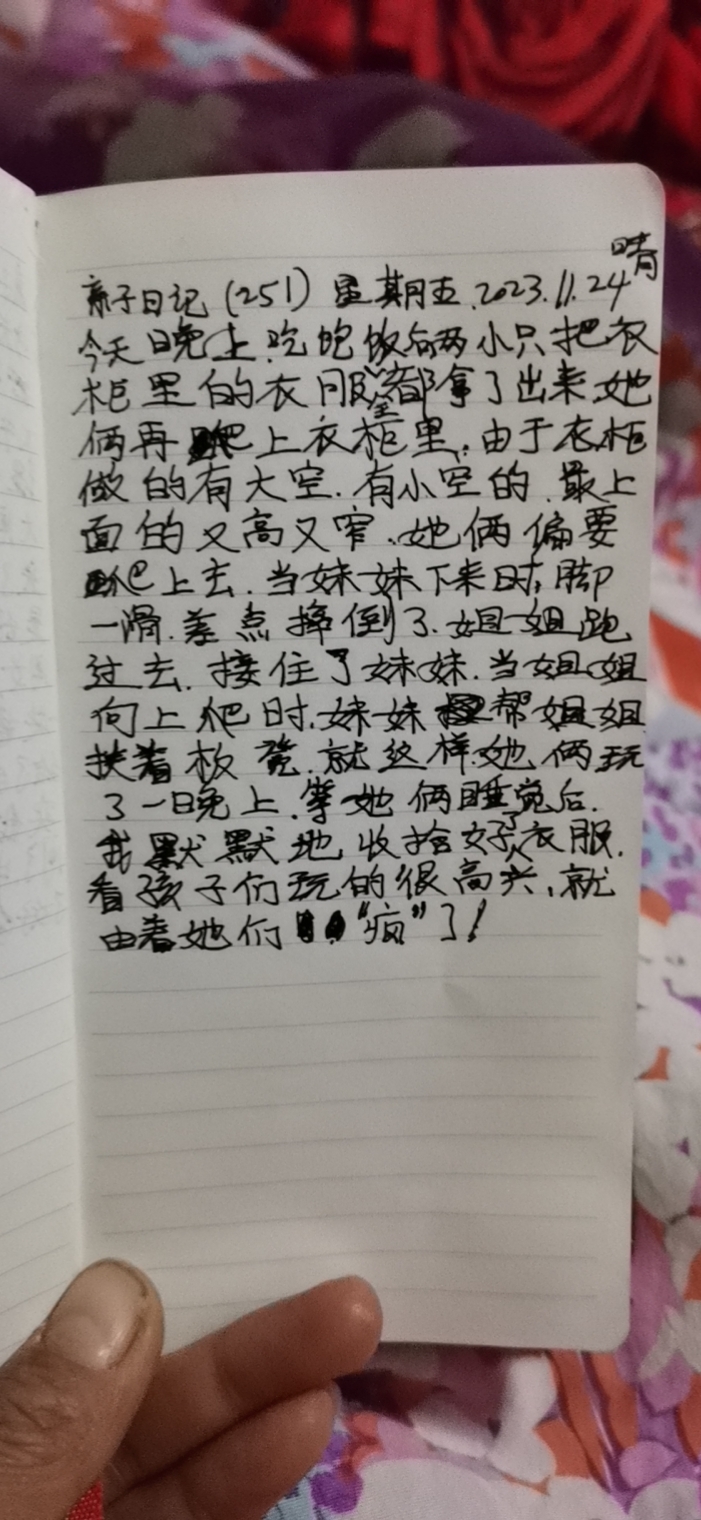 晴
亲子日记（251）星期五.2023.11.24
今天晚上.吃饱饭后俩小只把衣
柜里的衣服全都拿了出来,她
俩再爬上衣柜里,由于衣柜
做的有大空.有小空的.最上
面的又高又窄.她俩偏要
爬上去.当妹妹下来时,脚
一滑.差点摔倒了.姐姐跑
过去.接住了妹妹.当姐姐
向上爬时.妹妹帮姐姐
扶着板凳.就这样.她俩玩
了一晚上.等她俩睡觉后.
我默默地收拾好了衣服.
看孩子们玩的很高兴,就
由着她们“疯”了!